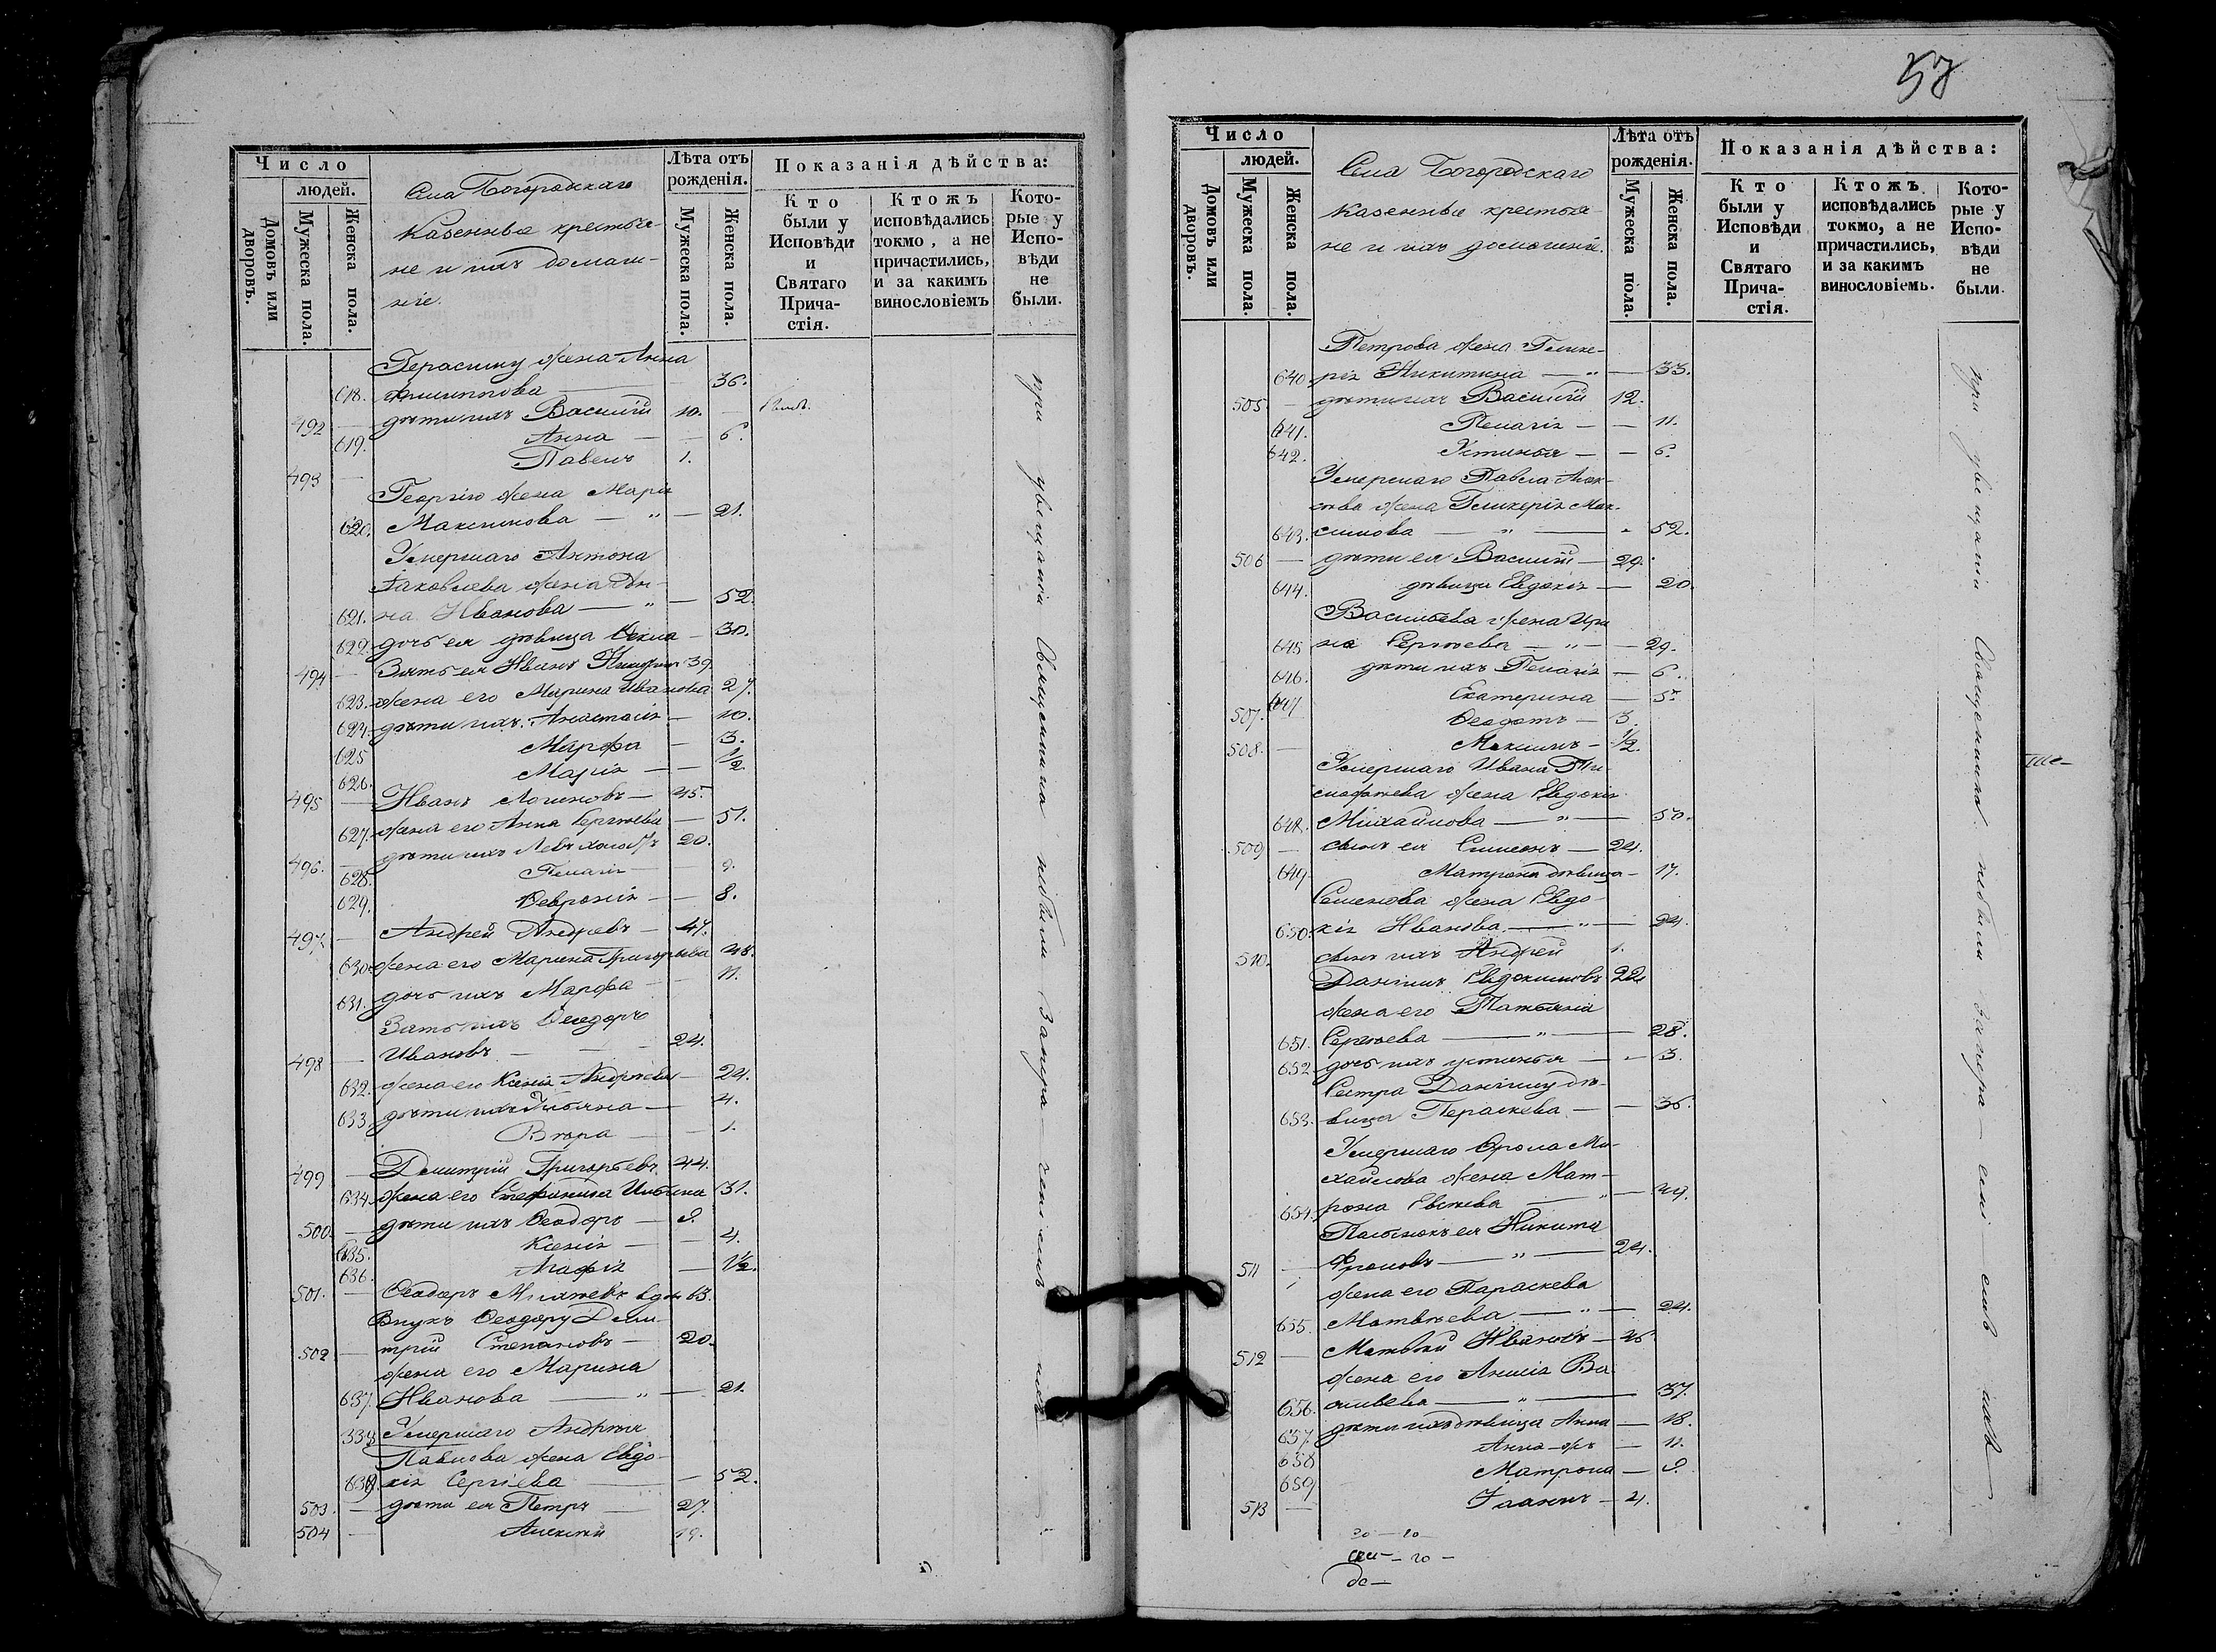 Число
людей.
Домовъ или дворовъ.
Мужеска пола.
Женска пола.
Села Богородскаго
Казенные крестья-
не и ихъ домаш-
ніе.
Лѣта отъ
рожденія.
Мужеска пола.
Женска пола.
Показанія дѣйства:
Кто
были у
Исповѣди
и
Святаго
Прича-
стія.
Ктожъ
исповѣдались
токмо, а не
причастились,
и за какимъ
винословіемъ
Кото-
рые у
Испо-
вѣди
не
были.
Герасиму жена Анна
618. Филиппова 36.
492 дѣти ихъ Василій 10.
619. Анна 6.
493 Павелъ 1.
Георгію жена Марія
620. Максимова — " — 21.
Умершаго Антона
Іаковлева жена Ан-
621. на Иванова — " — 52.
622. дочь ея дѣвица Ѳекла — 30.
494 Зять ея Иванъ 39.
623. жена его Марина Иванова 27.
624. дѣти ихъ Анастасія — 10.
625 Марфа — 3.
626. Марія — 1/2
495 Иванъ Логиновъ — 45.
627. жена его Анна Сергѣева — 51.
496. дѣти ихъ Левъ холостъ 20.
628. Пелагія — 9.
629. Ѳевронія — 8.
497. Андрей Андреевъ — 47.
630 жена его Марина Григорьева 48.
631. дочь ихъ Марфа — 11.
Зять ихъ Ѳеодоръ
498 Ивановъ 24.
632. жена его Ксенія Андреева — 24.
633. дѣти ихъ Татьяна — 4.
Вѣра — 1.
499 Димитрій Григорьевъ 44.
634. жена его Стефанида Ильина 31.
500. дѣти ихъ Ѳеодоръ — 9.
635. Ксенія — 4.
636. Агафія — 1 1/2.
501. Ѳеодоръ вдов 63.
Внукъ Ѳеодору Дими-
502 трій Степановъ — 20.
жена его Марина
637. Иванова — " — 21.
338 Умершаго Андрея
Павлова жена Евдо-
639. кія Сергіева — 52.
503. дѣти ея Петръ — 27.
504 Алексѣй 19.
при увѣщаніи Священника небыли
57
Число
людей.
Домовъ или дворовъ.
Мужеска пола.
Женска пола.
Села Богородскаго
казенные крестья-
не и ихъ домашніе.
Лѣта отъ
рожденія.
Мужеска пола.
Женска пола.
Показанія дѣйства:
Кто
были у
Исповѣди
и
Святаго
Прича-
стія.
Ктожъ
исповѣдались
токмо, а не
причастились,
и за какимъ
винословіемъ.
Кото-
рые у
Испо-
вѣди
не
были.
Петрова жена Глике-
640 рія Никитина — " — 33.
505. дѣти ихъ Василій 12.
641. Пелагія — — 11.
642. Устинья — — 6.
Умершаго Павла Алек-
сѣева жена Гликерія Мак-
643. симова — " — 52.
506 дѣти ея Василій — 29.
644. дѣвица Евдокія — 20.
Васильева жена Ири
645 на Сергѣева — " — 29.
646. дѣти ихъ Пелагія — 6.
647 Екатерина — 5.
507. Ѳеодотъ — 3.
508. Максимъ — 1/2.
Умершаго Ивана Ти-
моѳеева жена Евдокія
648. Михайлова — " — 50.
509 сынъ ея Симеонъ — 24.
649 Матрона дѣвица — 17.
Семенова жена Евдо-
650. кія Иванова — " — 24.
510. сынъ ихъ Андрей 1.
Даніилъ Евдокимовъ 22
жена его Татьяна
651. Сергѣева — " — 28.
652 дочь ихъ устинья — 3.
Сестра Даніилу дѣ-
653. вица Параскева — — 36.
Умершаго Фрола Ми-
хайлова жена Мат-
654. рона — " — 44.
Пасынокъ ея Никита
511 Фроловъ — " — 24.
жена его Параскева
655. Матвѣева — " — 24.
512 Матвѣй Ивановъ — 46
жена его Анисія Ва-
656. сильева — " — 37.
657 дѣти ихъ дѣвица Анна — 18.
658 Анна-жъ — 11.
659 Матрона — 9.
513 Іоаннъ — 4.
при увѣщаніи Священника небыли
20 — 20 —